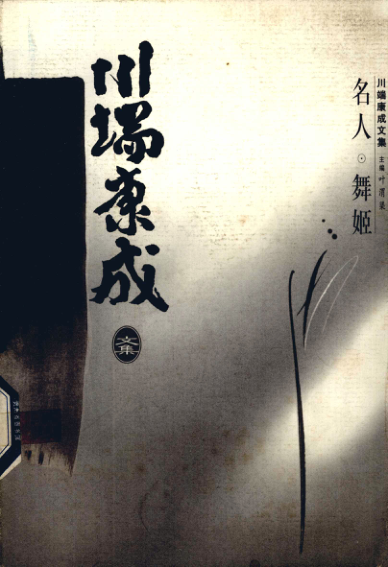 川端康成文集
主编 叶渭渠
名人·舞姬
川端康成
文集